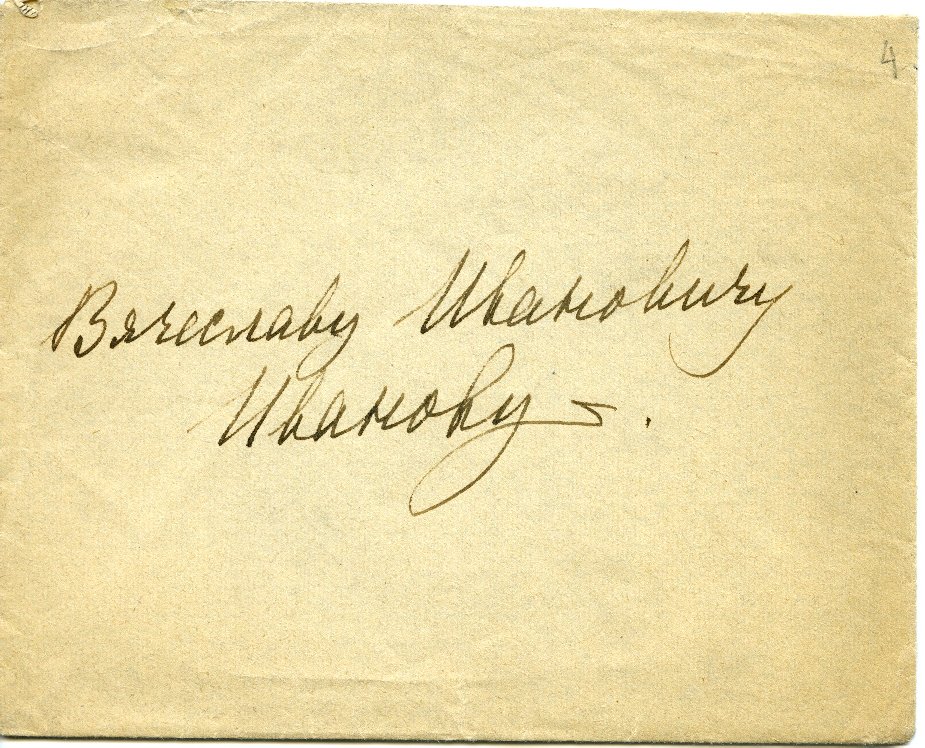 4
Вячеславу Ивановичу
Иванову.